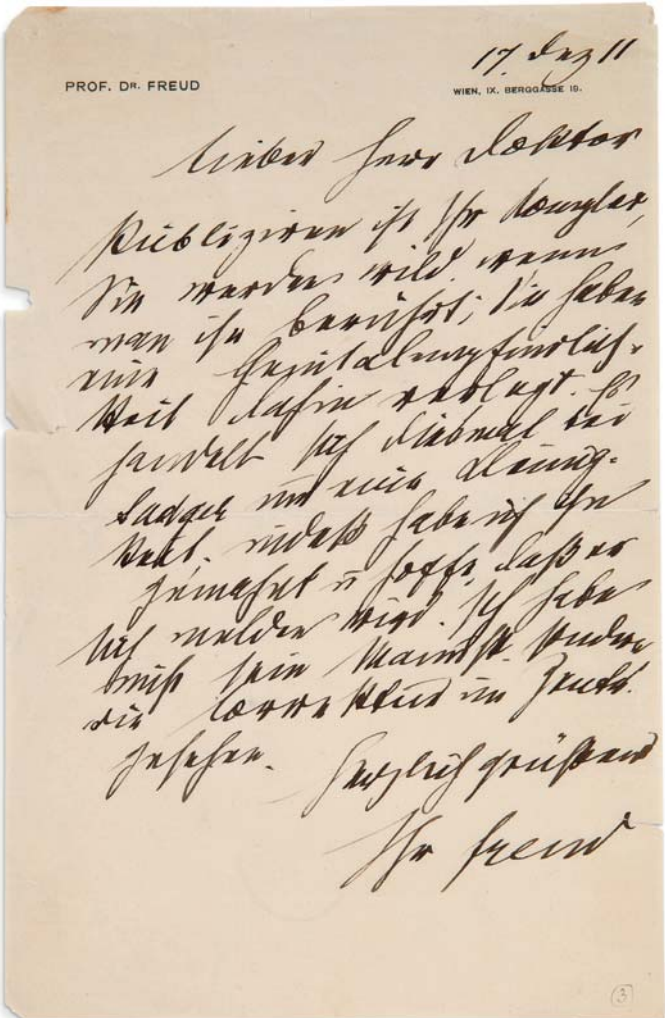 17. Dez 11
PROF. DR. FREUD
WIEN, IX. BERGGASSE 19.
Lieber Herr Doktor
Publiziren ist Ihr Komplex,
Sie werden wild wenn
man ihn berührt; Sie haben
eine Genitalempfindlich-
keit dahin verlegt. Es
handelt sich diesmal bei
Sadger um eine Kleinig-
keit, indeß habe ich ihn
gemahnt u hoffe, daß er
sich melden wird. Ich habe
nicht sein Manuskr. sondern
die Correktur im Zentr.
gesehen.
Herzlich grüßend
Ihr Freud
3